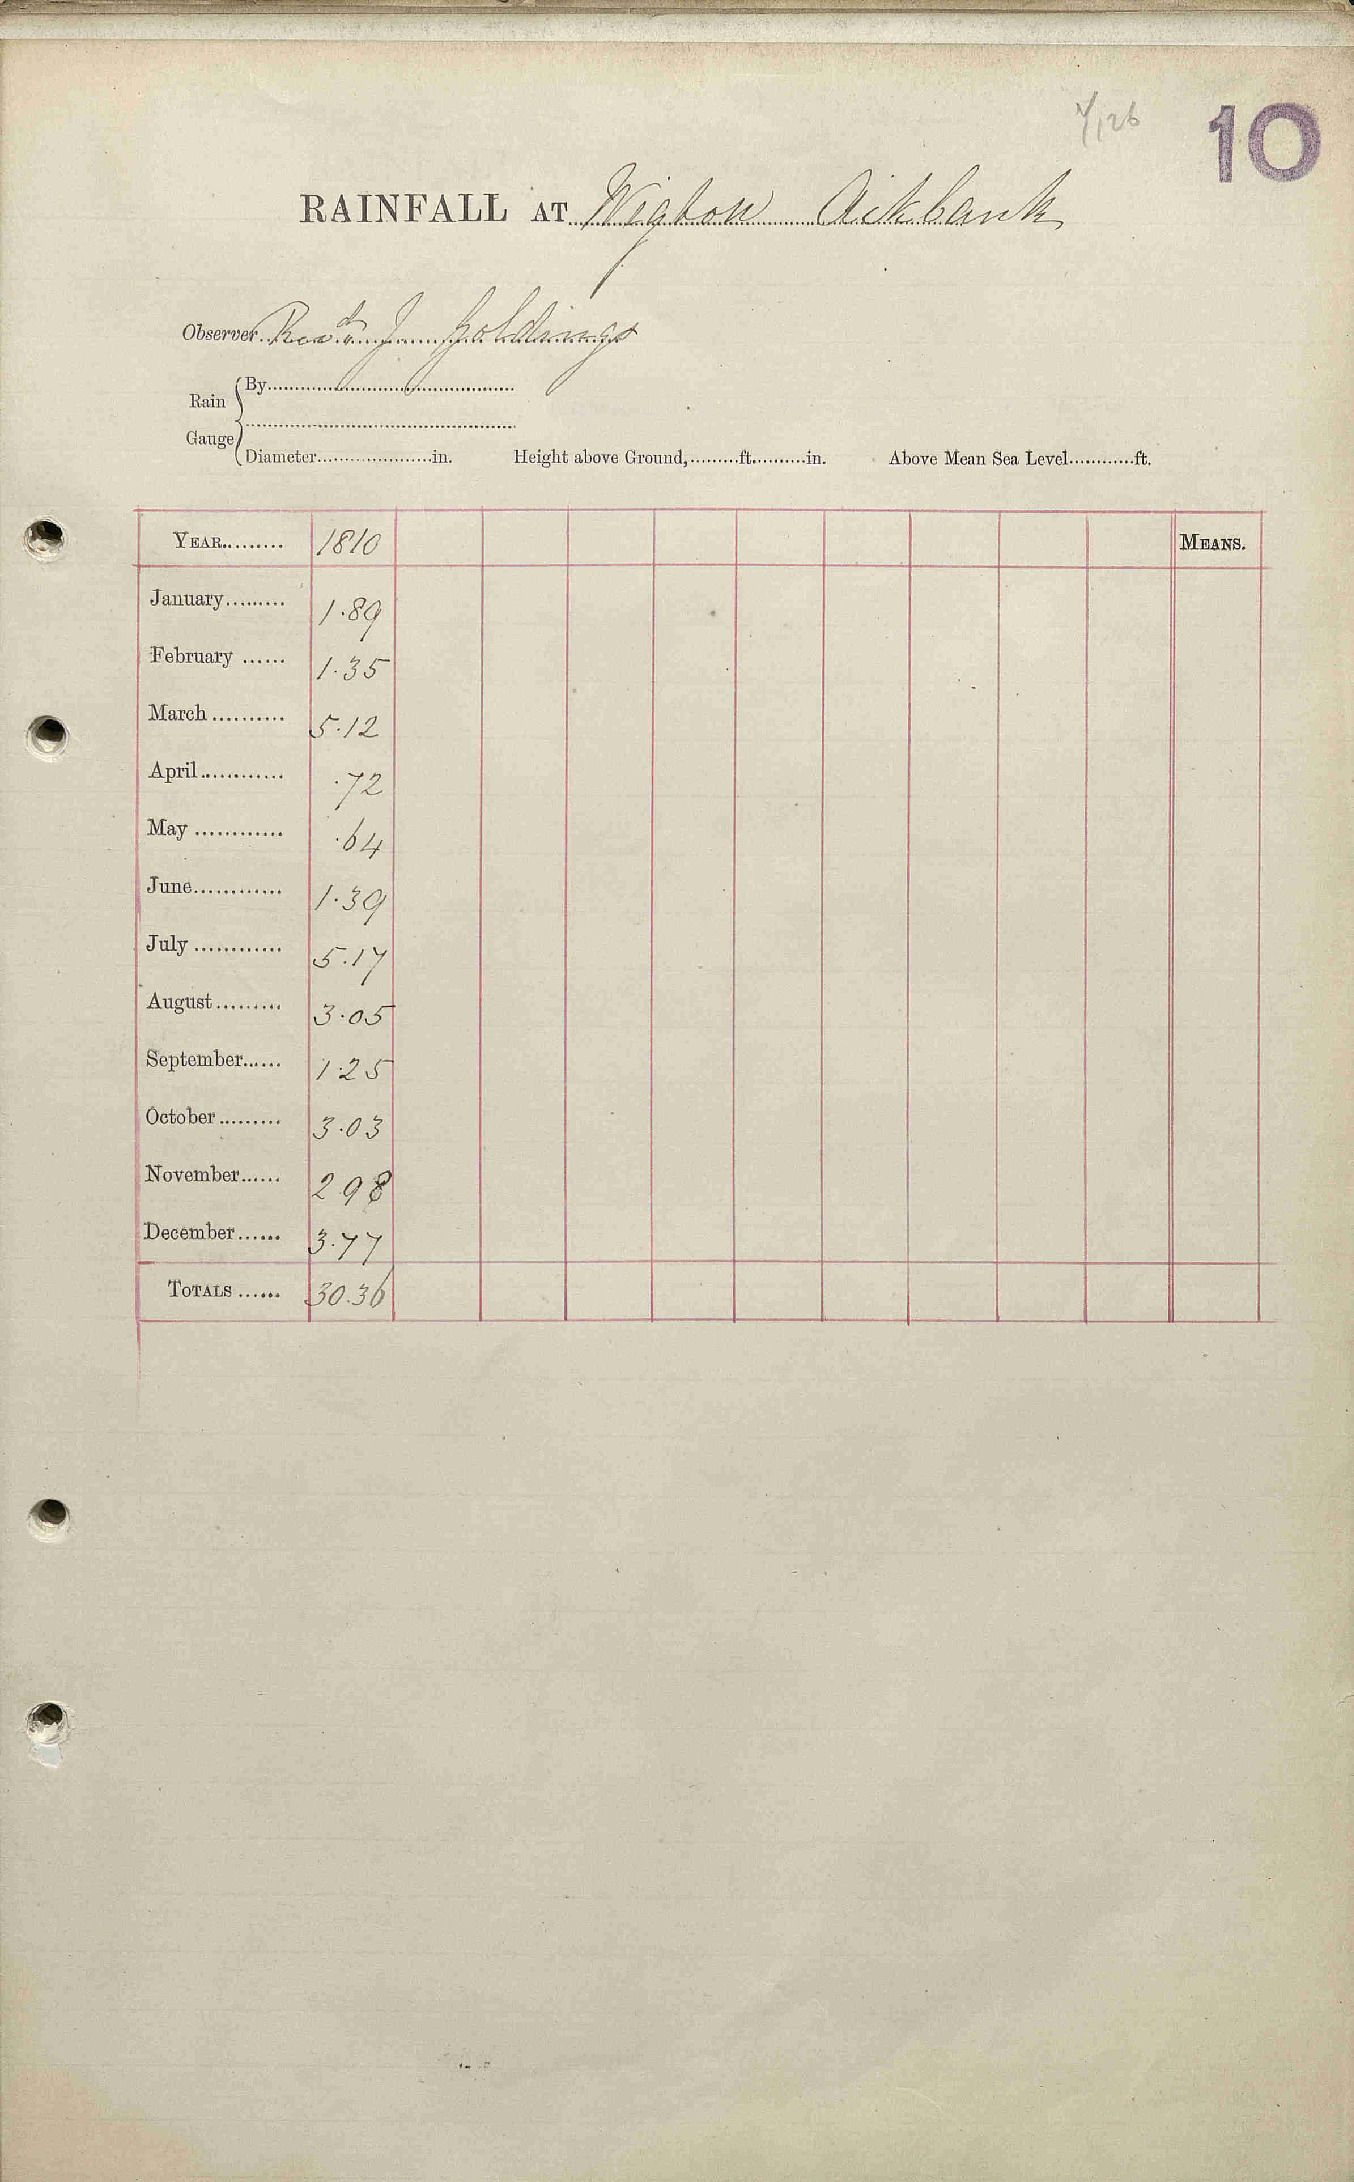 1/126 10
RAINFALL AT Wigton Aikbank
Observer Revd. J. Goldings
Rain Gauge
By
Diameter in. Height above Ground, ft. in. Above Mean Sea Level ft.
YEAR 1810 MEANS.
January 1.89
February 1.35
March 5.12
April .72
May .64
June 1.39
July 5.17
August 3.05
September 1.25
October 3.03
November 2.98
December 3.77
TOTALS 30.36